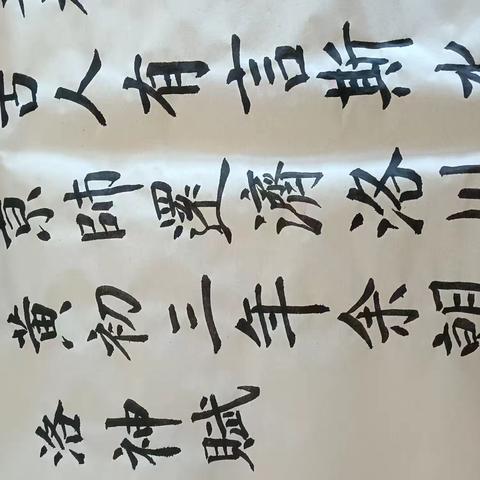 洛神賦
黄初三年余朝
京師還濟洛川
古人有言斯水